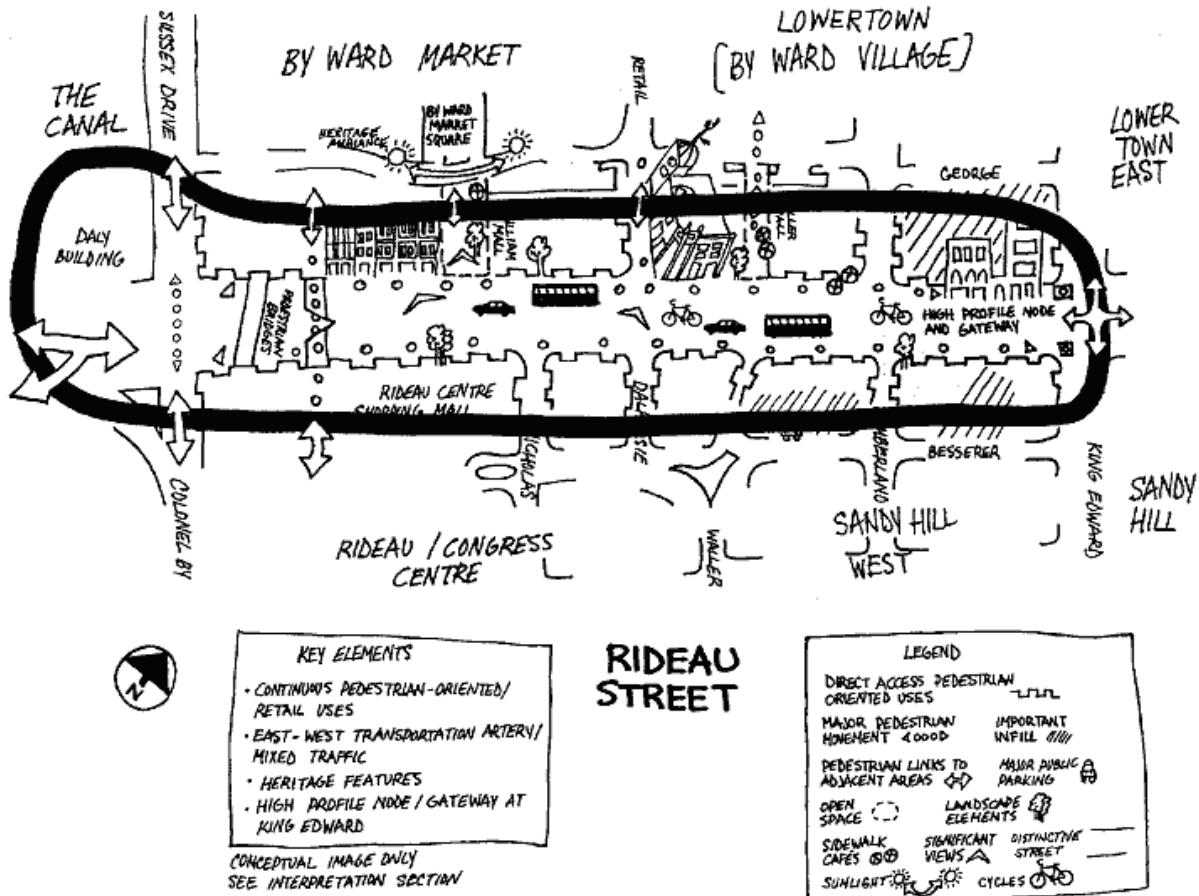 SUSSEX DRIVE
BY WARD MARKET
LOWERTOWN
[BY WARD VILLAGE]
THE
CANAL
RETAIL
LOWER
TOWN
EAST
HERITAGE
AMBIANCE
BY WARD
MARKET
SQUARE
GEORGE
DALY
BUILDING
MALL
PEDESTRIAN
BRIDGES
HIGH PROFILE NODE
AND GATEWAY
RIDEAU CENTRE
SHOPPING MALL
NICHOLAS
BESSERER
COLONEL BY
RIDEAU / CONGRESS
CENTRE
WALLER
SANDY HILL
WEST
KING EDWARD
SANDY
HILL
N
KEY ELEMENTS
• CONTINUOUS PEDESTRIAN-ORIENTED/
RETAIL USES
• EAST-WEST TRANSPORTATION ARTERY/
MIXED TRAFFIC
• HERITAGE FEATURES
• HIGH PROFILE NODE / GATEWAY AT
KING EDWARD
CONCEPTUAL IMAGE ONLY
SEE INTERPRETATION SECTION
RIDEAU
STREET
LEGEND
DIRECT ACCESS PEDESTRIAN
ORIENTED USES
MAJOR PEDESTRIAN
MOVEMENT
IMPORTANT
INFILL
PEDESTRIAN LINKS TO
ADJACENT AREAS
MAJOR PUBLIC
PARKING
OPEN
SPACE
LANDSCAPE
ELEMENTS
SIDEWALK
CAFES
SIGNIFICANT
VIEWS
DISTINCTIVE
STREET
SUNLIGHT
CYCLES